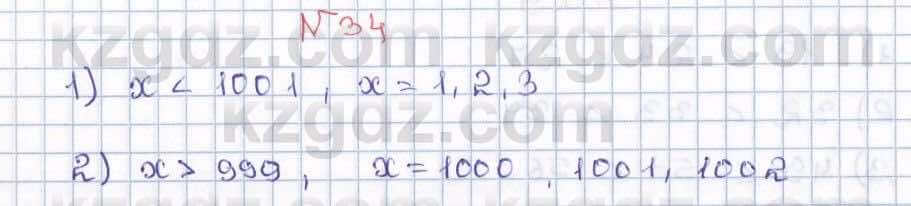 kzgdz.com kzgdz.com
№34
1) x < 1001, x = 1, 2, 3
kzgdz.com
2) x > 999, x = 1000, 1001, 1002